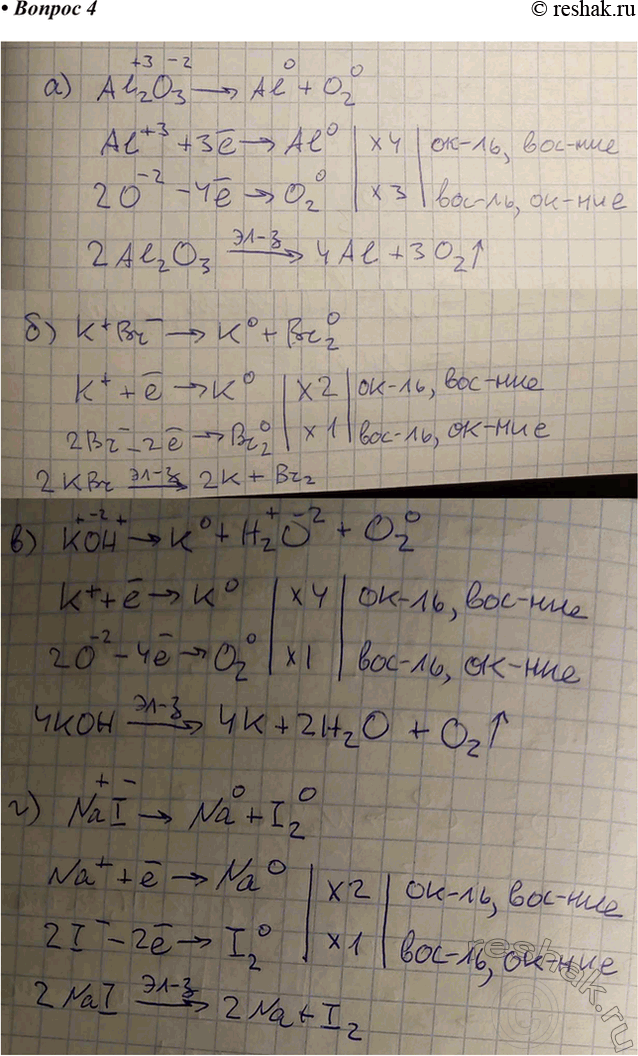 • Вопрос 4
© reshak.ru
а) Al₂⁺³O₃⁻² → Al⁰ + O₂⁰
Al⁺³ + 3ē → Al⁰ | ×4 | ок-ль, вос-ние
2O⁻² - 4ē → O₂⁰ | ×3 | вос-ль, ок-ние
2Al₂O₃ эл-з→ 4Al + 3O₂↑
б) K⁺Br⁻ → K⁰ + Br₂⁰
K⁺ + ē → K⁰ | ×2 | ок-ль, вос-ние
2Br⁻ - 2ē → Br₂⁰ | ×1 | вос-ль, ок-ние
2KBr эл-з→ 2K + Br₂
в) K⁺O⁻²H⁺ → K⁰ + H₂⁺O⁻² + O₂⁰
K⁺ + ē → K⁰ | ×4 | ок-ль, вос-ние
2O⁻² - 4ē → O₂⁰ | ×1 | вос-ль, ок-ние
4KOH эл-з→ 4K + 2H₂O + O₂↑
г) Na⁺I⁻ → Na⁰ + I₂⁰
Na⁺ + ē → Na⁰ | ×2 | ок-ль, вос-ние
2I⁻ - 2ē → I₂⁰ | ×1 | вос-ль, ок-ние
2NaI эл-з→ 2Na + I₂
reshak.ru